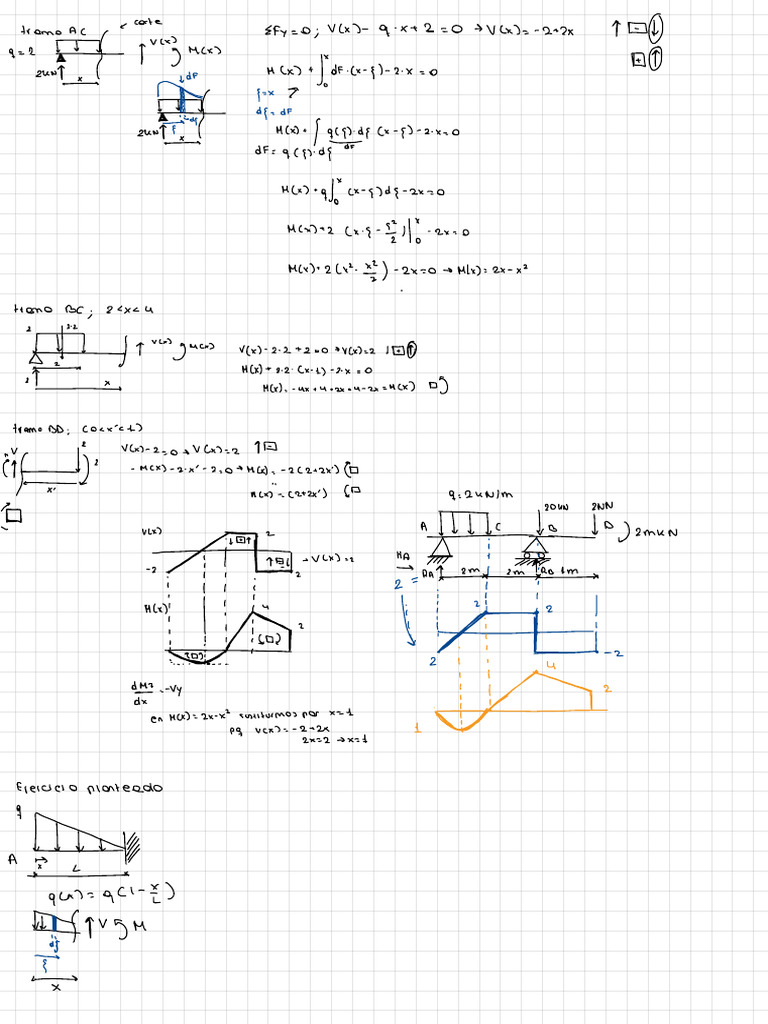 tramo AC
corte
q = 2
V(x)
M(x)
2kN
x
ΣFy=0; V(x) - q·x+2=0 → V(x)= -2+2x
dF
ξ
dξ
2kN
x
M(x) + ∫₀ˣ dF·(x-ξ)-2·x=0
ξ=x
dξ = dF
M(x)+ ∫ q(ξ)·dξ (x-ξ)-2·x=0
dF
dF= q(ξ)·dξ
M(x)+q∫₀ˣ (x-ξ)dξ-2x=0
M(x)+2 (x·ξ - ξ²/2)|₀ˣ - 2x=0
M(x)+2(x²· x²/2) -2x=0 → M(x)= 2x-x²
tramo BC; 2<x<4
2
2·2
V(x)
M(x)
2
2
x
V(x)-2·2+2=0 → V(x)=2
M(x)+2·2·(x-1)-2·x=0
M(x)= -4x+4+2x=4-2x=M(x)
tramo BD; (0<x'<1)
M
V
2
2
x'
V(x)-2=0 → V(x)=2
-M(x)-2·x'-2=0 → M(x)= -2(2+2x')
M(x)=(2+2x')
V(x)
2
-2
2
→ V(x)=2
M(x)
4
2
q=2kN/m
20kN
2kN
A
C
B
D
2mkN
HA
RA
2m
2m
RB
1m
2 =
2
2
2
-2
4
2
1
dMz/dx = -Vy
en M(x)= 2x-x² sustituimos por x=1
pq V(x)= -2+2x
2x=2 → x=1
Ejercicio planteado
q
A
x
L
q(x)= q(1-x/L)
V
M
dξ
ξ
x